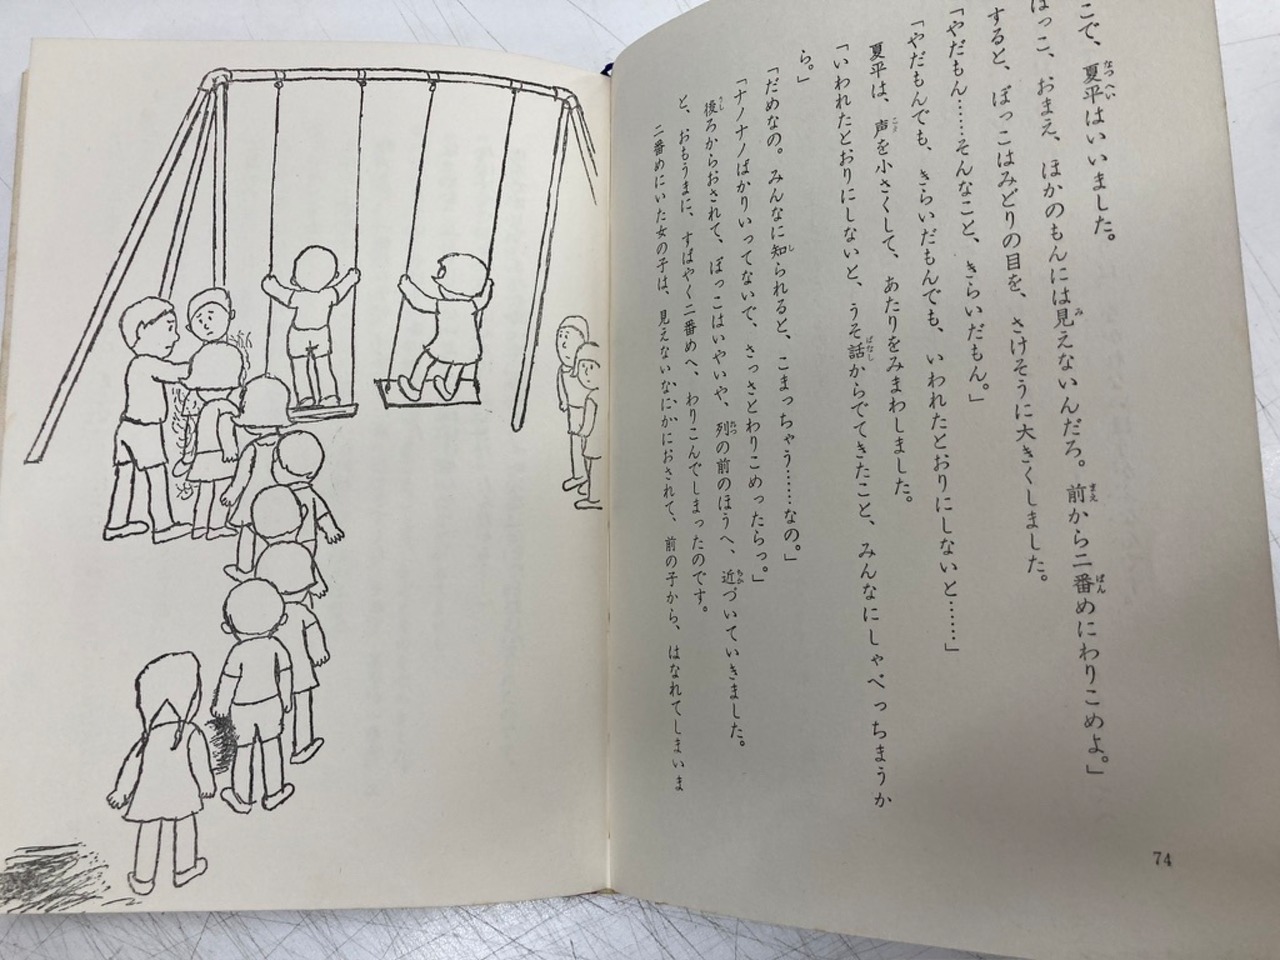 こで、夏平はいいました。
ぼっこ、おまえ、ほかのもんには見えないんだろ。前から二番めにわりこめよ。」
すると、ぼっこはみどりの目を、さけそうに大きくしました。
「やだもん……そんなこと、きらいだもん。」
「やだもんでも、きらいだもんでも、いわれたとおりにしないと……」
夏平は、声を小さくして、あたりをみまわしました。
「いわれたとおりにしないと、うそ話からでてきたこと、みんなにしゃべっちまうか
ら。」
「だめなの。みんなに知られると、こまっちゃう……なの。」
「ナノナノばかりいってないで、さっさとわりこめったらっ。」
後ろからおされて、ぼっこはいやいや、列の前のほうへ、近づいていきました。
と、おもうまに、すばやく二番めへ、わりこんでしまったのです。
二番めにいた女の子は、見えないなにかにおされて、前の子から、はなれてしまいま
74